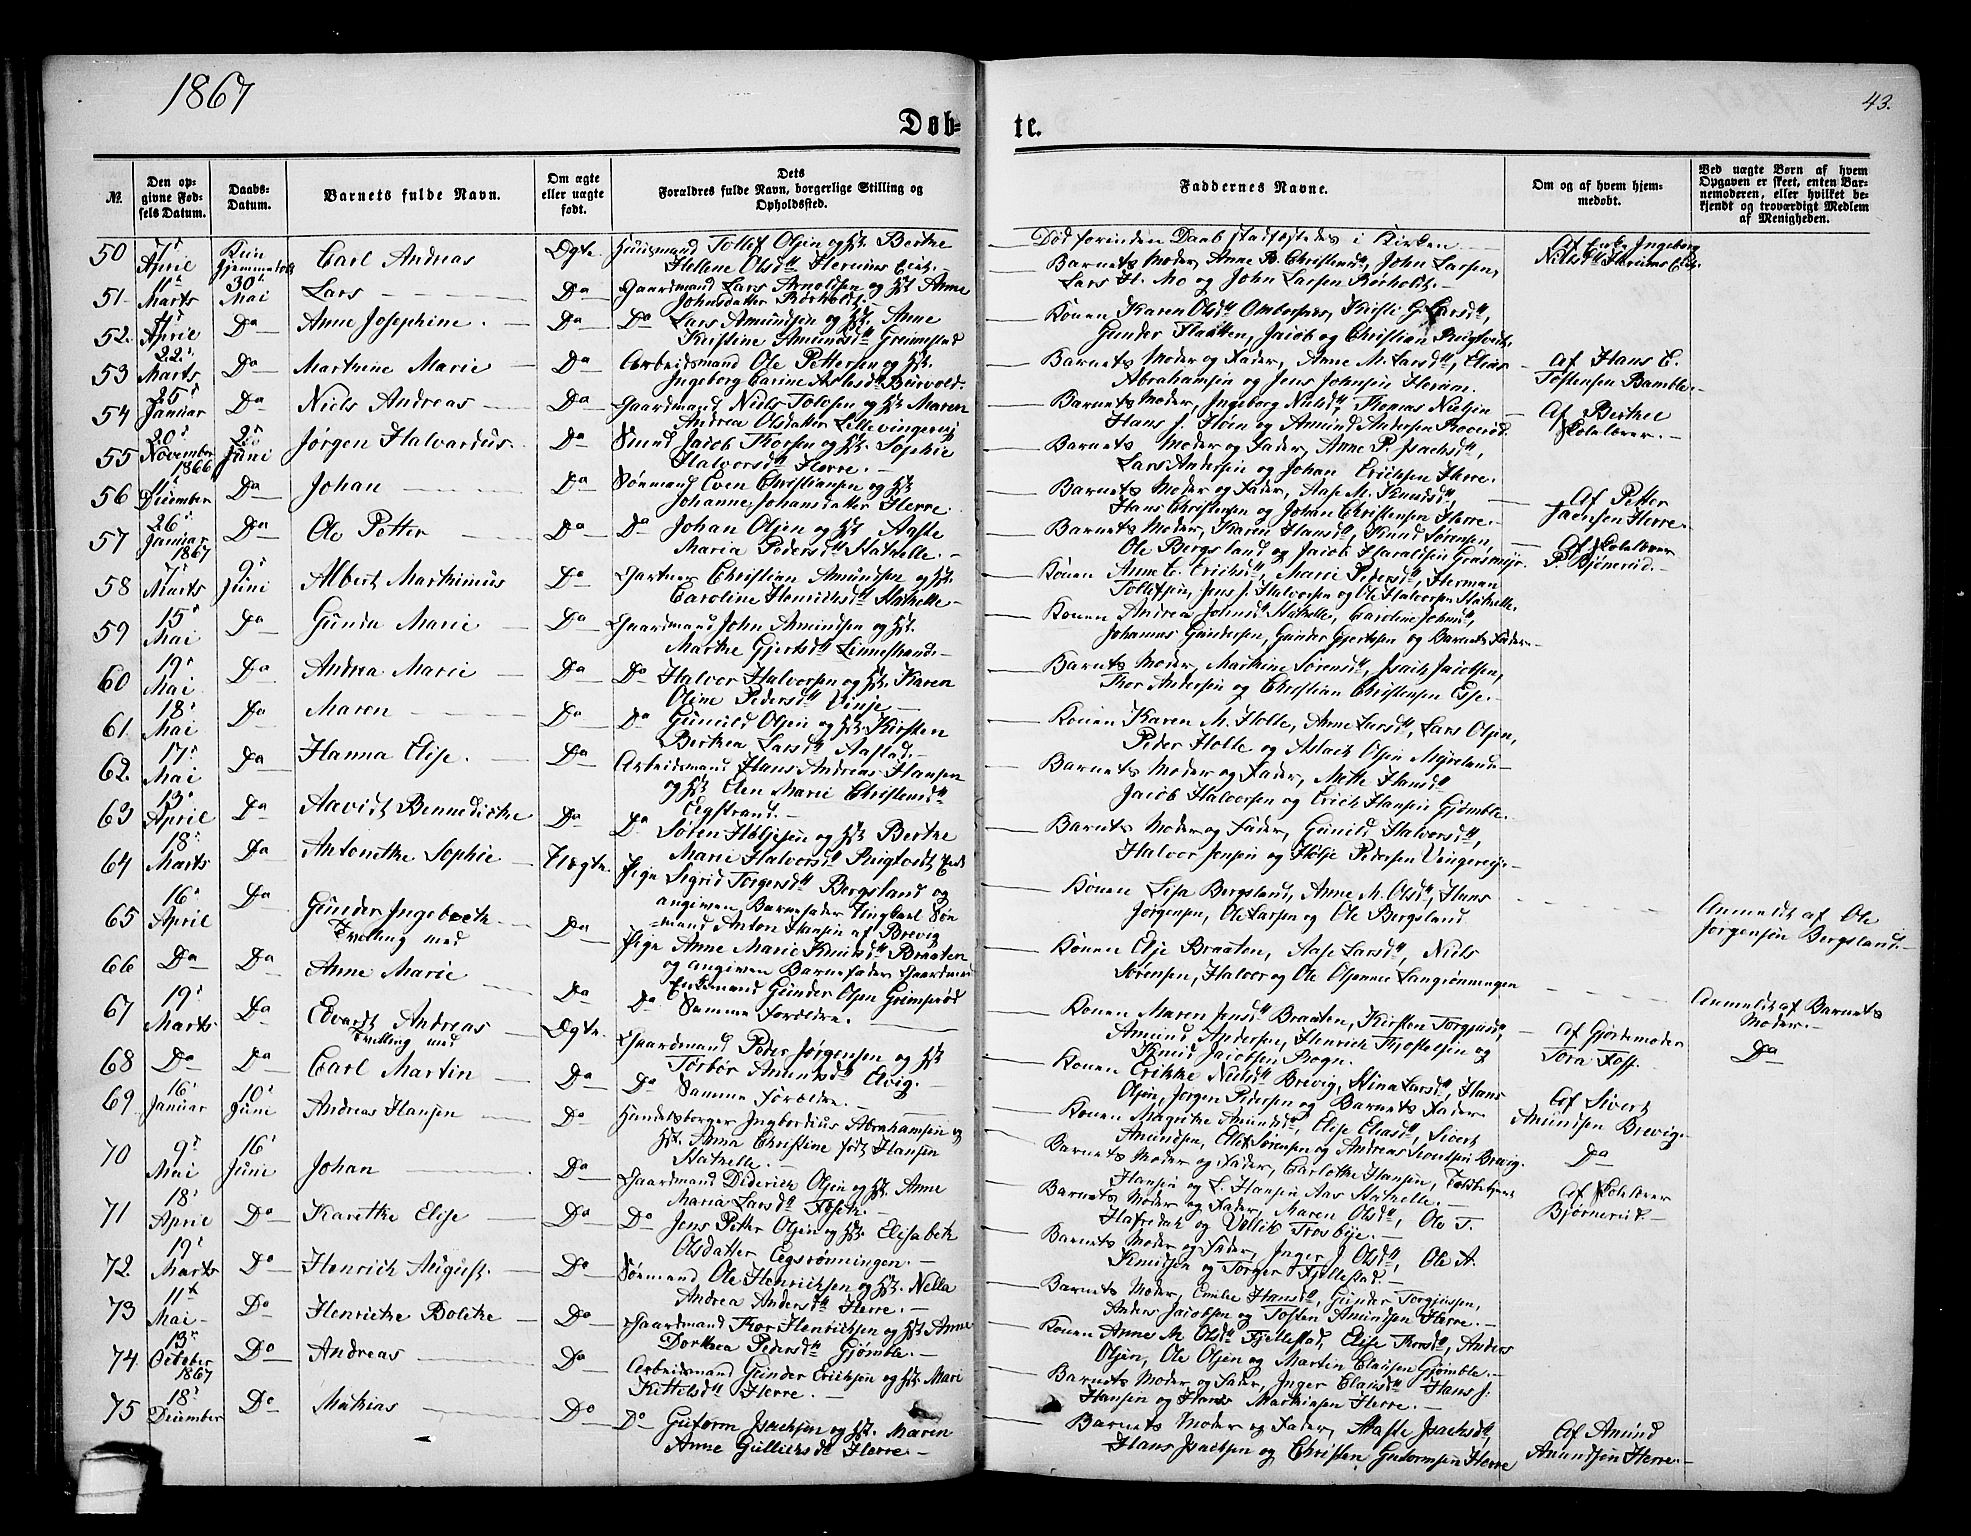 1867
43.
Døb-
te.
№.
Den op-
givne Fød-
sels Datum.
Daabs-
Datum.
Barnets fulde Navn.
Om ægte
eller uægte
født.
Dets
Forældres fulde Navn, borgerlige Stilling og
Opholdssted.
Faddernes Navne.
Om og af hvem hjem-
medøbt.
Ved uægte Børn af hvem
Opgaven er skeet, enten Bar-
nemoderen, eller hvilket be-
kjendt og troværdigt Medlem
af Menigheden.
50 April Carl Andreas Ægte Huusmand Tollef Olsen og Hst. Berthe
Helene Olsd.
Død forinden Daab stadfæstedes i Kirken
Af Enke Ingeborg
51. 11 Marts 30 Mai Lars Do Gaardmand Lars Arnoldsen og Hst Anne
Johnsdatter Rørholt
Barnets Moder, Anne B. Christensd, John Larsen,
Lars H. Mo og John Larsen Rørholt.
52. April Da Anne Josephine. Da Do Lars Amundsen og Hst. Anne
Kristine Amundsd Greimestad
Konen Karen Olsd Kristi G. Larsd,
Gunder Flaatten, Jacob og Christian Rugtvedt
53 22 Marts Da Marthine Marie Da Arbeidsmand Ole Pettersen og Hst.
Ingeborg Carine
Barnets Moder og Fader, Anne M. Larsd, Elias
Abrahamsen og Jens Johnsen Herum.
Af Hans E.
Tostensen Bamble.
54 25 Januar Da Niels Andreas Da Gaardmand Niels Tolvsen og Hst Maren
Andrea Olsdatter
Barnets Moder, Ingeborg Nielsd, Thomas Nielsen
Hans J. og Amund Andersen
Af Berthel
55 20 November 1866 2 Juni Jørgen Halvardus. Da Smed Jacob Thorsen og Hst. Sophie
Halvorsd Herre.
Barnets Moder og Fader, Anne P. Isachsd,
Lars Andersen og Johan Erichsen Herre.
56 11 December Da Johan Da Sømand Even Christiansen og Hst
Johanne Johansdatter Herre
Barnets Moder og Fader, Aase M. Knudsd,
Hans Christensen og Johan Christensen Herre.
Af Petter
Herre
57 26 Januar 1867 Da Ole Petter Da Do Johan Olsen og Hst Aaste
Maria Pedersd Stathelle.
Barnets Moder, Karen Hansd, Knud Sørensen,
Ole Bergsland og Jacob Haraldsen
58 7 Marts 9 Juni Albert Marthinius Da Gartner Christian Amundsen og Hst.
Caroline Henriksd Stathelle
Konen Anne C. Ericksd, Marie Pedersd, Herman
Tollefsen, Jens J. Halvorsen og Ole Halvorsen Stathelle.
59 15 Mai Da Gunda Marie Da Gaardmand John Amundsen og Hst.
Marthe Gjertsd Linnestrand.
Konen Andrea Johnsd Stathelle, Caroline Johnsd,
Johannes Gundersen, Gunder Gjertsen og Barnets Fader
60 19 Mai Da Andrea Marie Da Do Halvor Halvorsen og Hst Karen
Oline Pedersd Vinje
Barnets Moder, Marthine Sørensd, Isach Jacobsen,
Thor Andersen og Christian Christensen
61. 18 Mai Da Maren Da Do Gunuld Olsen og Hst Kirsten
Berthea Larsd Aastad.
Konen Karen M. Holte, Anne Larsd, Lars Olsen,
Peder Holte og Aslack Olsen
62. 17 Mai Da Hanna Elise. Da Arbeidsmand Hans Andreas Hansen
og Hst Elen Marie Christensd
Barnets Moder og Fader, Mette Hansd
Jacob Halvorsen og Erich Hansen Gjømble.
63 13 April Da Benedicthe Da Do Søren Holjesen og Hst Berthe
Marie Halvorsd Rugtvedt
Barnets Moder og Fader, Gunild Halvorsd,
Halvor Jensen og Holje Pedersen
64 18 Marts Da Antonethe Sophie Uægte Pige Sigrid Torgersd Bergsland og
angiven Barnefader
mand Anton Hansen af Brevig
Konen Lisa Bergsland, Anne M. Olsd, Hans
Jørgensen, Ole Larsen og Ole Bergsland
Anmeldt af Ole
Jorgensen Bergsland.
65 16 April Da Gunder Ingebreth
Tvilling med
Da Pige Anne Marie Knudsd Braaten
og angiven Barnefader Gaardmand
Enkemand Gunder Olsen Grimsrød
Konen Else Braaten, Aase Larsd, Niels
Sørensen, Halvor og Ole Olsønner Langrønningen
Anmeldt af Barnets
Moder.
66 Da Da Anne Marie Da Do Samme Forældre.
Konen Maren Jensd Braaten, Kirsten Torgjusd,
Amund Andersen, Henrich Kjostolsen og
Knud Jacobsen Rogn.
Da
67 19 Marts Da Edvardt Andreas
Tvilling med
Ægte. Gaardmand Peder Jørgensen og Hst
Torbor Amundsd
Konen Erikke Nielsd Brevig, Stina Larsd, Hans
Olsen, Jorgen Pedersen og Barnets Fader
Af Gjordemoder
Tora Foss.
68 Da Da Carl Martin Da Do Samme Forældre.
Konen Magrethe Amundsd, Elise Eliasd, Sivert
Amundsen, Ole Sørensen og Andreas Brevig.
Af Sivert
Amundsen Brevig
69 16 Januar 10 Juni Andreas Hansen Do Handelsborger Ingbordius Abrahamsen og
Hst. Anna Christine født Hansen
Stathelle.
Barnets Moder og Fader, Carlothe Hansen,
Hansen og L. Hansen Aas Stathelle
Da
70 9 Mai 16 Juni Johan Da Gaardmand Diderich Olsen og Hst Anne
Maria Larsd
Barnets Moder og Fader, Maren Olsd, Ole T.
Hafredal og Trosbye.
Af
Bjørnerud.
71 18 April Da Karethe Elise Da Do Jens Petter Olsen og Hst. Elisabeth
Olsdatter
Barnets Moder og Fader, Inger J Olsd, Ole A.
Knudsen og Torger Fjellestad.
72. 19 Marts Do Henrich August. Do Sømand Ole Henrichsen og Hst. Nella
Andrea Andersd Herre.
Barnets Moder, Emilie Hansd, Gunder Torgjusen,
Anders Jacobsen og Tosten Amundsen Herre.
73 11 Mai Do Henriette Bolthe Do Gaardmand Thor Henrichsen og Hst Anne
Dorthea Pedersd Gjømble.
Konen Anne M. Olsd Fjellestad, Elise Thorsd, Anders
Olsen, Ole Olsen og Martin Clausen Gjømble.
74. 13 October 1867 Do Andreas Da Arbeidsmand Gunder Ericksen og Hst Mari
Kittelsd Herre.
Barnets Moder og Fader, Inger Clausd Hans J.
Hansen og Hans Mathiasen Herre.
75 18 December Do Mathias Do Do Guttorm Isachsen og Hst. Maren
Anne Gulliksd Herre.
Barnets Moder og Fader, Aaste Isachsd,
Hans Isachsen og Christen Gutormsen Herre
Af Amund
Amundsen Herre.